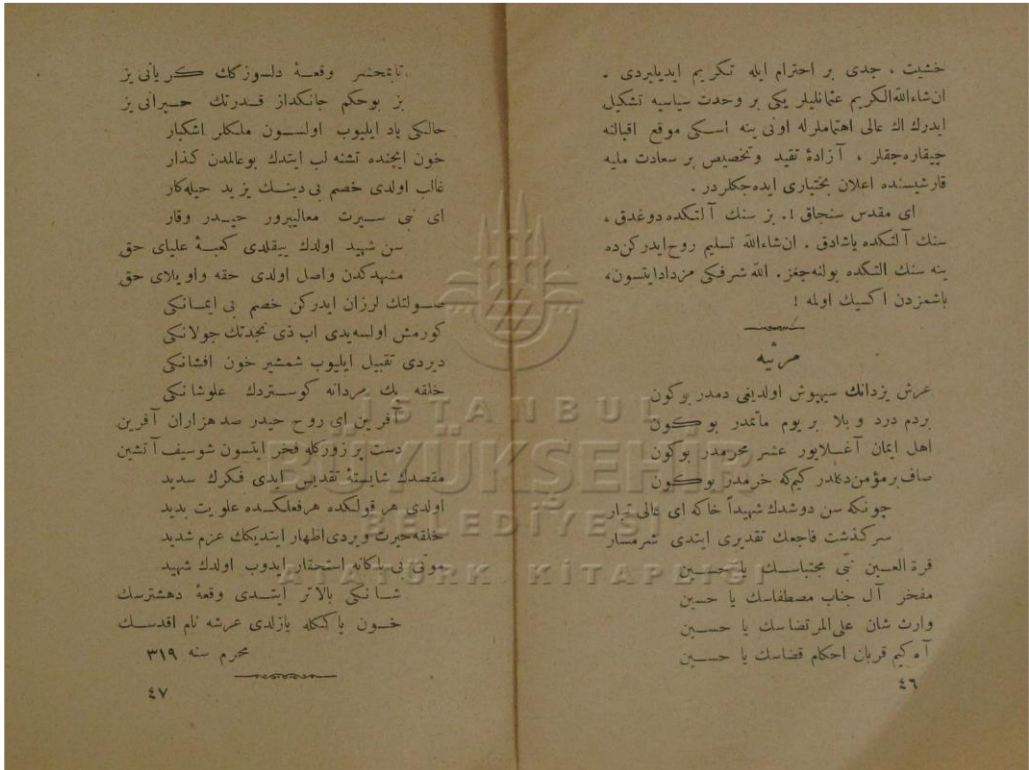 خشیت ، جدی بر احترام ایله تکریم ایدیلیردی .
ان‌شاءالله‌الکریم عثمانلیلر یکی بر وحدت سیاسیه تشکیل
ایدرك اك عالی اهتماملرله اونی ینه اسکی موقع اقبالنه
چیقاره‌جقلر ، آزادهٔ تقید وتخصیص بر سعادت ملیه
قارشیسنده اعلان بختیاری ایده‌جکلردر .
ای مقدس سنجاق !. بز سنك آلتکده دوغدق ،
سنك آلتکده یاشادق . ان‌شاءالله تسلیم روح ایدرکن‌ده
ینه سنك التکده بولنه‌جغز . الله شرفکی مزداد ایتسون،
باشمزدن اکسیك اولمه !
مرثیه
عرش یزدانك سیهپوش اولدیغی دمدر بوکون
بردم درد و بلا بر یوم ماتمدر بوکون
اهل ایمان آغلایور عشر محرمدر بوکون
صاف برمؤمن دکلدر کیم‌که خرمدر بوکون
چونکه سن دوشدك شهیداً خاکه ای عالی تبار
سرکذشت فاجعك تقدیری ایتدی شرمسار
قرة العین نبی مجتباسك یا حسین
مفخر آل جناب مصطفاسك یا حسین
وارث شان علی‌المرتضاسك یا حسین
آه کیم قربان احکام قضاسك یا حسین
٤٦
تابمحشر وقعهٔ دلسوزكك کریانی یز
بز بوحکم جانکداز قدرتك حیرانی یز
حالکی یاد ایلیوب اولسون ملکلر اشکبار
خون ایچنده تشنه لب ایتدك بوعالمدن کذار
غالب اولدی خصم بی دینك یزید حیله‌کار
ای نبی سیرت معالیپرور حیدر وقار
سن شهید اولدك ییقلدی کعبهٔ علیای حق
مشهدکدن واصل اولدی حقه واویلای حق
صولتك لرزان ایدرکن خصم بی ایمانکی
کورمش اولسه‌یدی اب ذی نجدتك جولانکی
دیردی تقبیل ایلیوب شمشیر خون افشانکی
خلقه پك مردانه کوستردك علوشانکی
آفرین ای روح حیدر صد هزاران آفرین
دست پر زورکله فخر ایتسون شوسیف آتشین
مقصدك شایستهٔ تقدیس ایدی فکرك سدید
اولدی هر قولکده هرفعلکده علویت بدید
خلقه حیرت ویردی اظهار ایتدیکك عزم شدید
موتی بی باکانه استحقار ایدوب اولدك شهید
شانکی بالاتر ایتدی وقعهٔ دهشترسك
خون پاککله یازلدی عرشه نام اقدسك
محرم سنه ٣١٩
٤٧
İSTANBUL
BÜYÜKŞEHİR
BELEDİYESİ
ATATÜRK KİTAPLIĞI